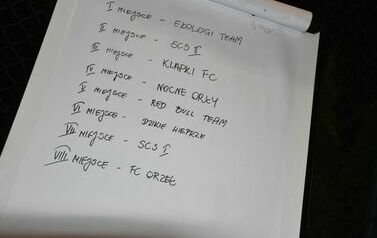 I MIEJSCE - EKOLOGI TEAM
II MIEJSCE - SCS II
III MIEJSCE - KLAPKI FC
IV MIEJSCE - NOCNE ORŁY
V MIEJSCE - RED BULL TEAM
VI MIEJSCE - DZIKIE WIEPRZE
VII MIEJSCE - SCS I
VIII MIEJSCE - FC ORZEŁ